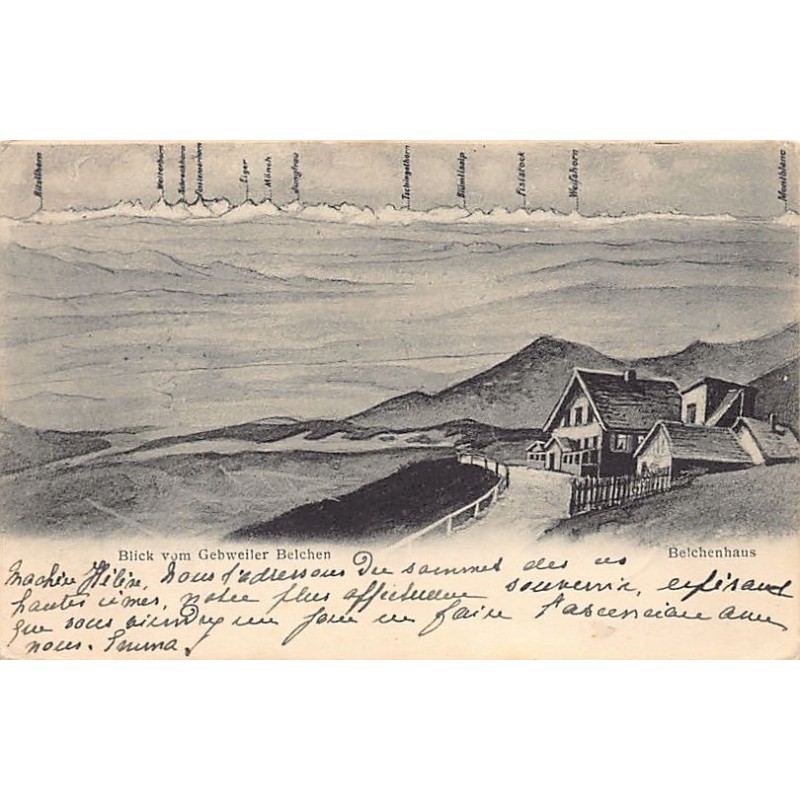 Wetterhorn
Schreckhorn
Finsteraarhorn
Eiger
Mönch
Jungfrau
Tschingelhorn
Blümlisalp
Fisistock
Weißhorn
Montblanc
Blick vom Gebweiler Belchen
Belchenhaus
Ma chère Hélène, Nous t'adressons du sommet des
hautes cîmes, notre plus affectueux souvenir, espérant
que vous viendrez un jour en faire l'ascension avec
nous. Emma.